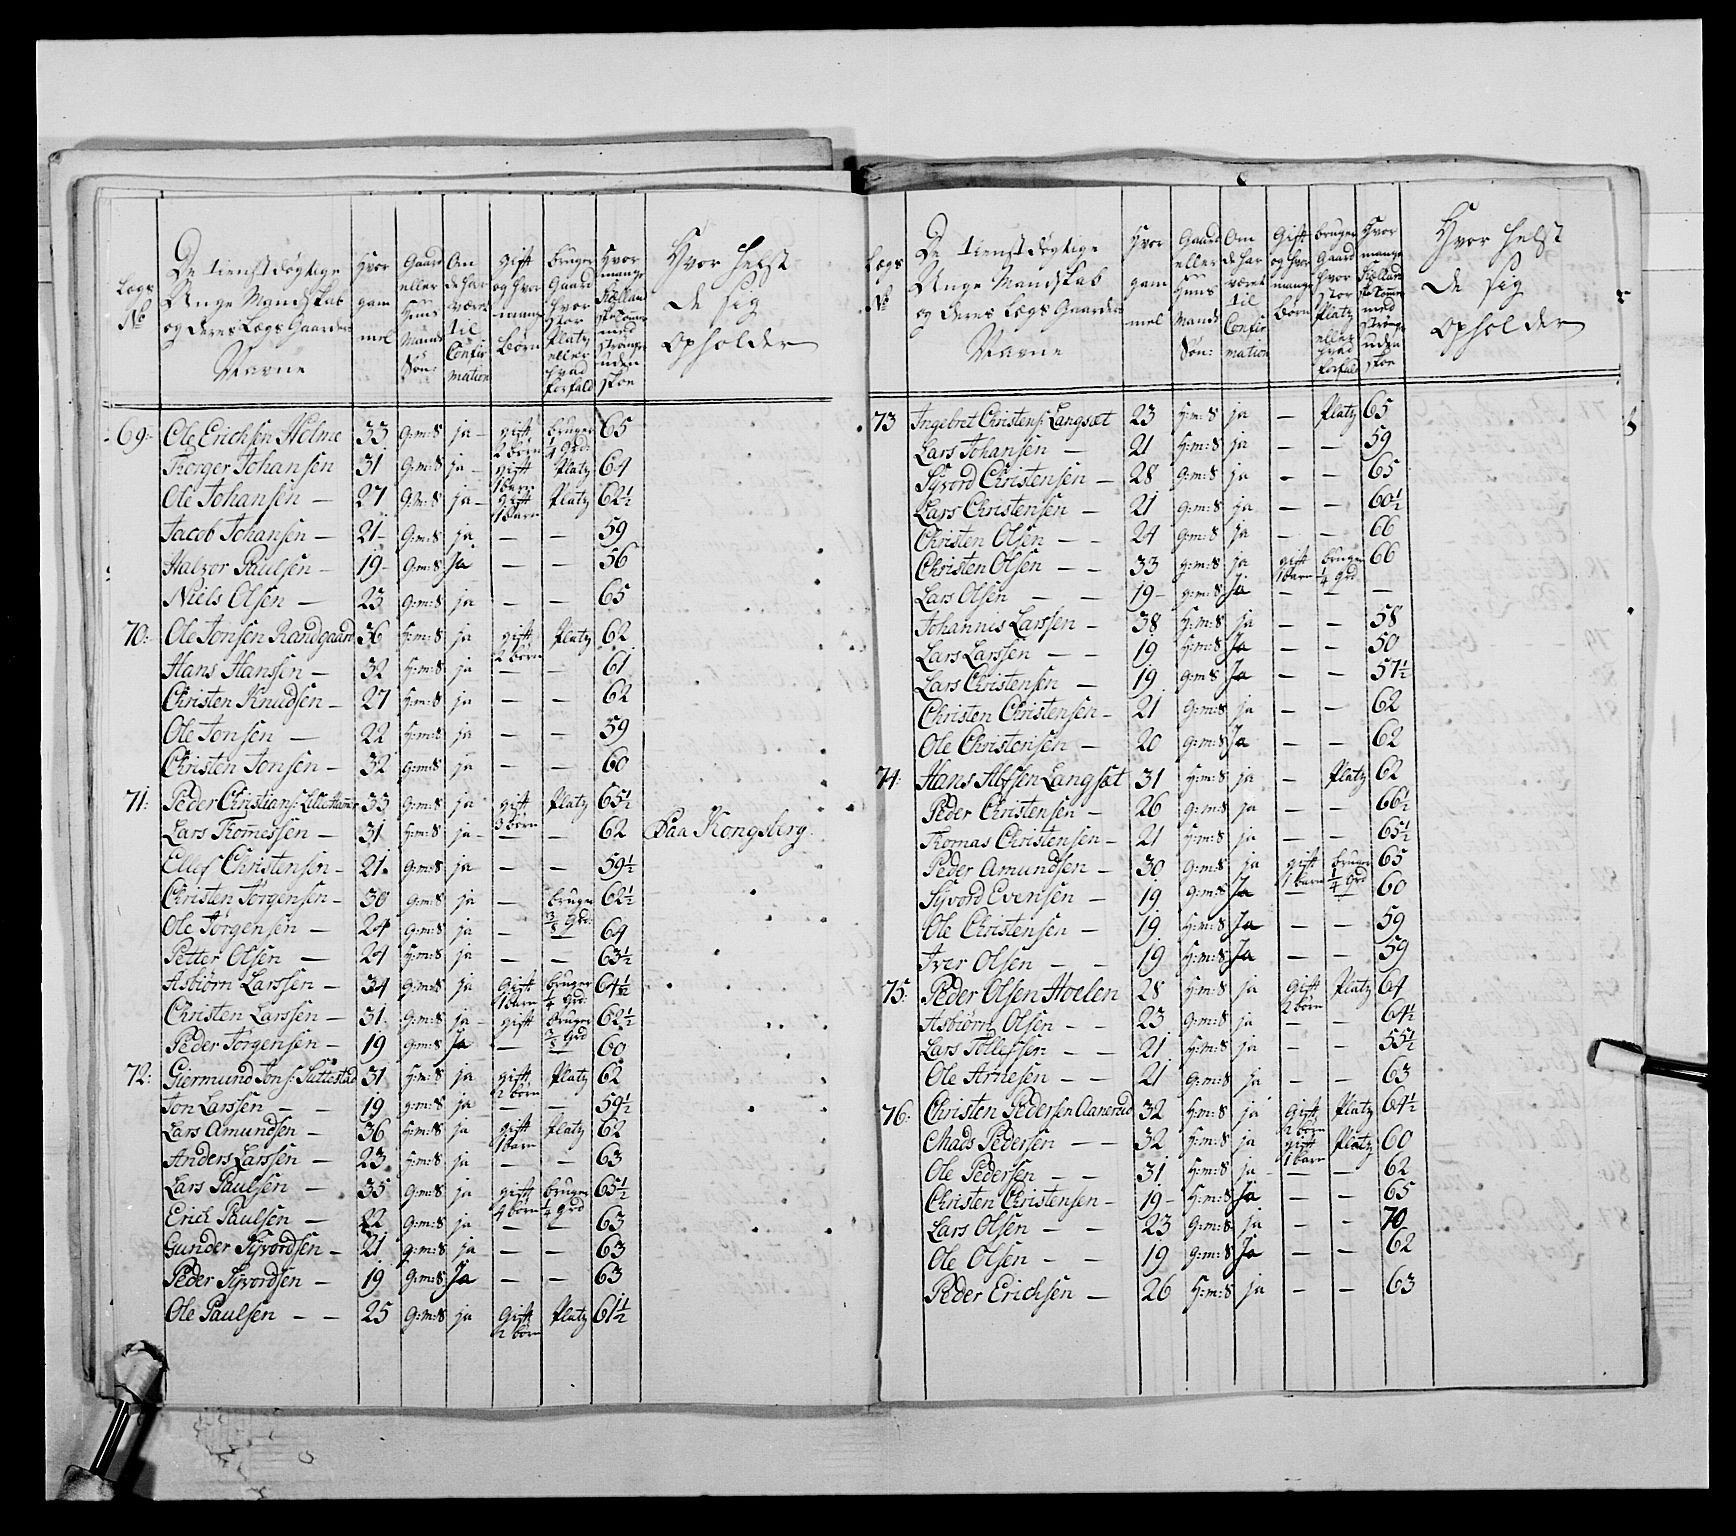 Lægs No
De tienstdögtige Unge Mandskab og deres Lægs Gaardes Navne
Hvor gam mel
Gaard eller Huus Mands Søn:
Om de har været til Confir mation
gift og hvor mange börn
bruger Gaard hvor stor Platz eller hvad forfald
Hvor mange Siælland ske Tomer med strömper uden skoe
Hvor helst de sig opholder
69: Ole Erichsen Holme 33 G:m:S ja - gift 2 börn bruger 1/4 Grd: 65
Torger Johansen 31 G:m:S ja - gift 1 barn Platz 64
Ole Johansen — 27 G:m:S ja - gift 1 barn Platz 62½
Jacob Johansen — 21 - G:m:S ja — — 59
Halzor Paulsen — 19 - G:m:S Ja — — 56
Niels Olsen — 23 G:m:S ja — — 65
70: Ole Jonsen Randgaard 36 H:m:S ja gift 2 börn Platz 62
Hans Hanssen — 32 H:m:S ja — — 61
Christen Knudsen — 27 H:m:S ja — — 62
Ole Jonsen — 22 H:m:S ja — — 59
Christen Jonsen — 32 G:m:S ja — — 60
71: Peder Christians: Lille Hamer 33 G:m:S ja gift 3 börn Platz 65½
Lars Thomessen — 31 H:m:S ja - — 62 Paa Kongsberg
Ellef Christensen — 21. G:m:S ja — — 59½
Christen Jörgensen — 30 G:m:S ja — bruger 3/8 Grd: 62½
Ole Jörgensen — 24 G:m:S ja — — 64
Petter Olsen — 24 H:m:S ja — — 63½
Asbiörn Larssen — 34 G:m:S ja gift 1 barn bruger 1/4 Grd: 64½
Christen Larssen — 31. G:m:S ja - gift bruger 3/8 Grd 62½
Peder Jörgensen — 19 G:m:S Ja — — 60
72: Giermund Jons: Suttestad 31 H:m:S ja gift 2 börn Platz 62
Jon Larssen — — 19 G:m:S ja — — 59½
Lars Amundsen — 36 H:m:S ja gift 1 barn Platz 62
Anders Larssen — 23. H:m:S ja — — 63
Lars Paulsen — 35 G:m:S ja gift 4 börn bruger 1/4 Grd 65½
Erich Paulsen — 22 G:m:S ja — — 63
Gunder Syvordsen — 21 G:m:S ja — — 63
Peder Syvordsen — 19 G:m:S Ja — — 63
Ole Paulsen — — 25 G:m:S ja Gift 2 börn Platz 61½
Lægs No
De tienstdögtige Unge Mandskab og deres Lægs Gaardes Navne
Hvor gam mel
Gaard eller Huus Mands Søn:
Om de har været til Confir mation
Gift og hvor mange börn
bruger Gaard hvor stor Platz eller hvad forfald
Hvor mange Siælland ske Tomer med strömper uden skoe
Hvor helst de sig opholder
73 Ingebret Christens: Langsæt 23 H:m:S ja — Platz 65
Lars Johansen — 21 H:m:S ja — — 59
Syvord Christensen — 28 G:m:S ja — — 65
Lars Christensen — 21 G:m:S ja — — 60½
Christen Olsen — — 24 G:m:S ja — — 66
Christen Olsen — — 33 G:m:S ja gift 1 barn bruger 1/4 Grd 66
Lars Olsen — — 19 - G:m:S Ja — — —
Johannes Larssen — 38 H:m:S ja — — 58
Lars Larssen — — 19 H:m:S Ja — — 50
Lars Christensen — 19 G:m:S Ja — — 57½
Christen Christensen — 21 G:m:S ja — — 62
Ole Christensen — 20 G:m:S Ja — — 62
74: Hans Alfsen Langsæt 31 H:m:S ja — Platz 62
Peder Christensen — 26 G:m:S ja — — 66½
Thomas Christensen — 21 H:m:S ja — — 65½
Peder Amundsen — 30 G:m:S ja gift 1 barn bruger 1/4 Grd 65
Syvord Evensen — 19 G:m:S Ja — — 60
Ole Christensen — 19 H:m:S Ja — — 59
Iver Olsen — — 19 H:m:S Ja — — 59
75: Peder Olsen Hoelen 28 H:m:S ja gift 2 börn Platz 64
Asbiörn Olsen — — 23 G:m:S ja — — 64½
Lars Tollefsen — — 21 H:m:S ja — — 55½
Ole Arnesen — — 21 G:m:S ja — — 63
76: Christen Pedersen Aanerud 32 H:m:S ja gift 2 börn Platz 64½
Mads Pedersen — — 32 H:m:S ja gift 1 barn Platz 60
Ole Pedersen — — 31 H:m:S ja — — 62
Christen Christensen — 19 - H:m:S Ja — — 65
Lars Olsen — — 23 G:m:S ja — — 70
Ole Olsen — — 19 G:m:S Ja — — 62
Peder Erichsen — 26 H:m:S ja — — 63